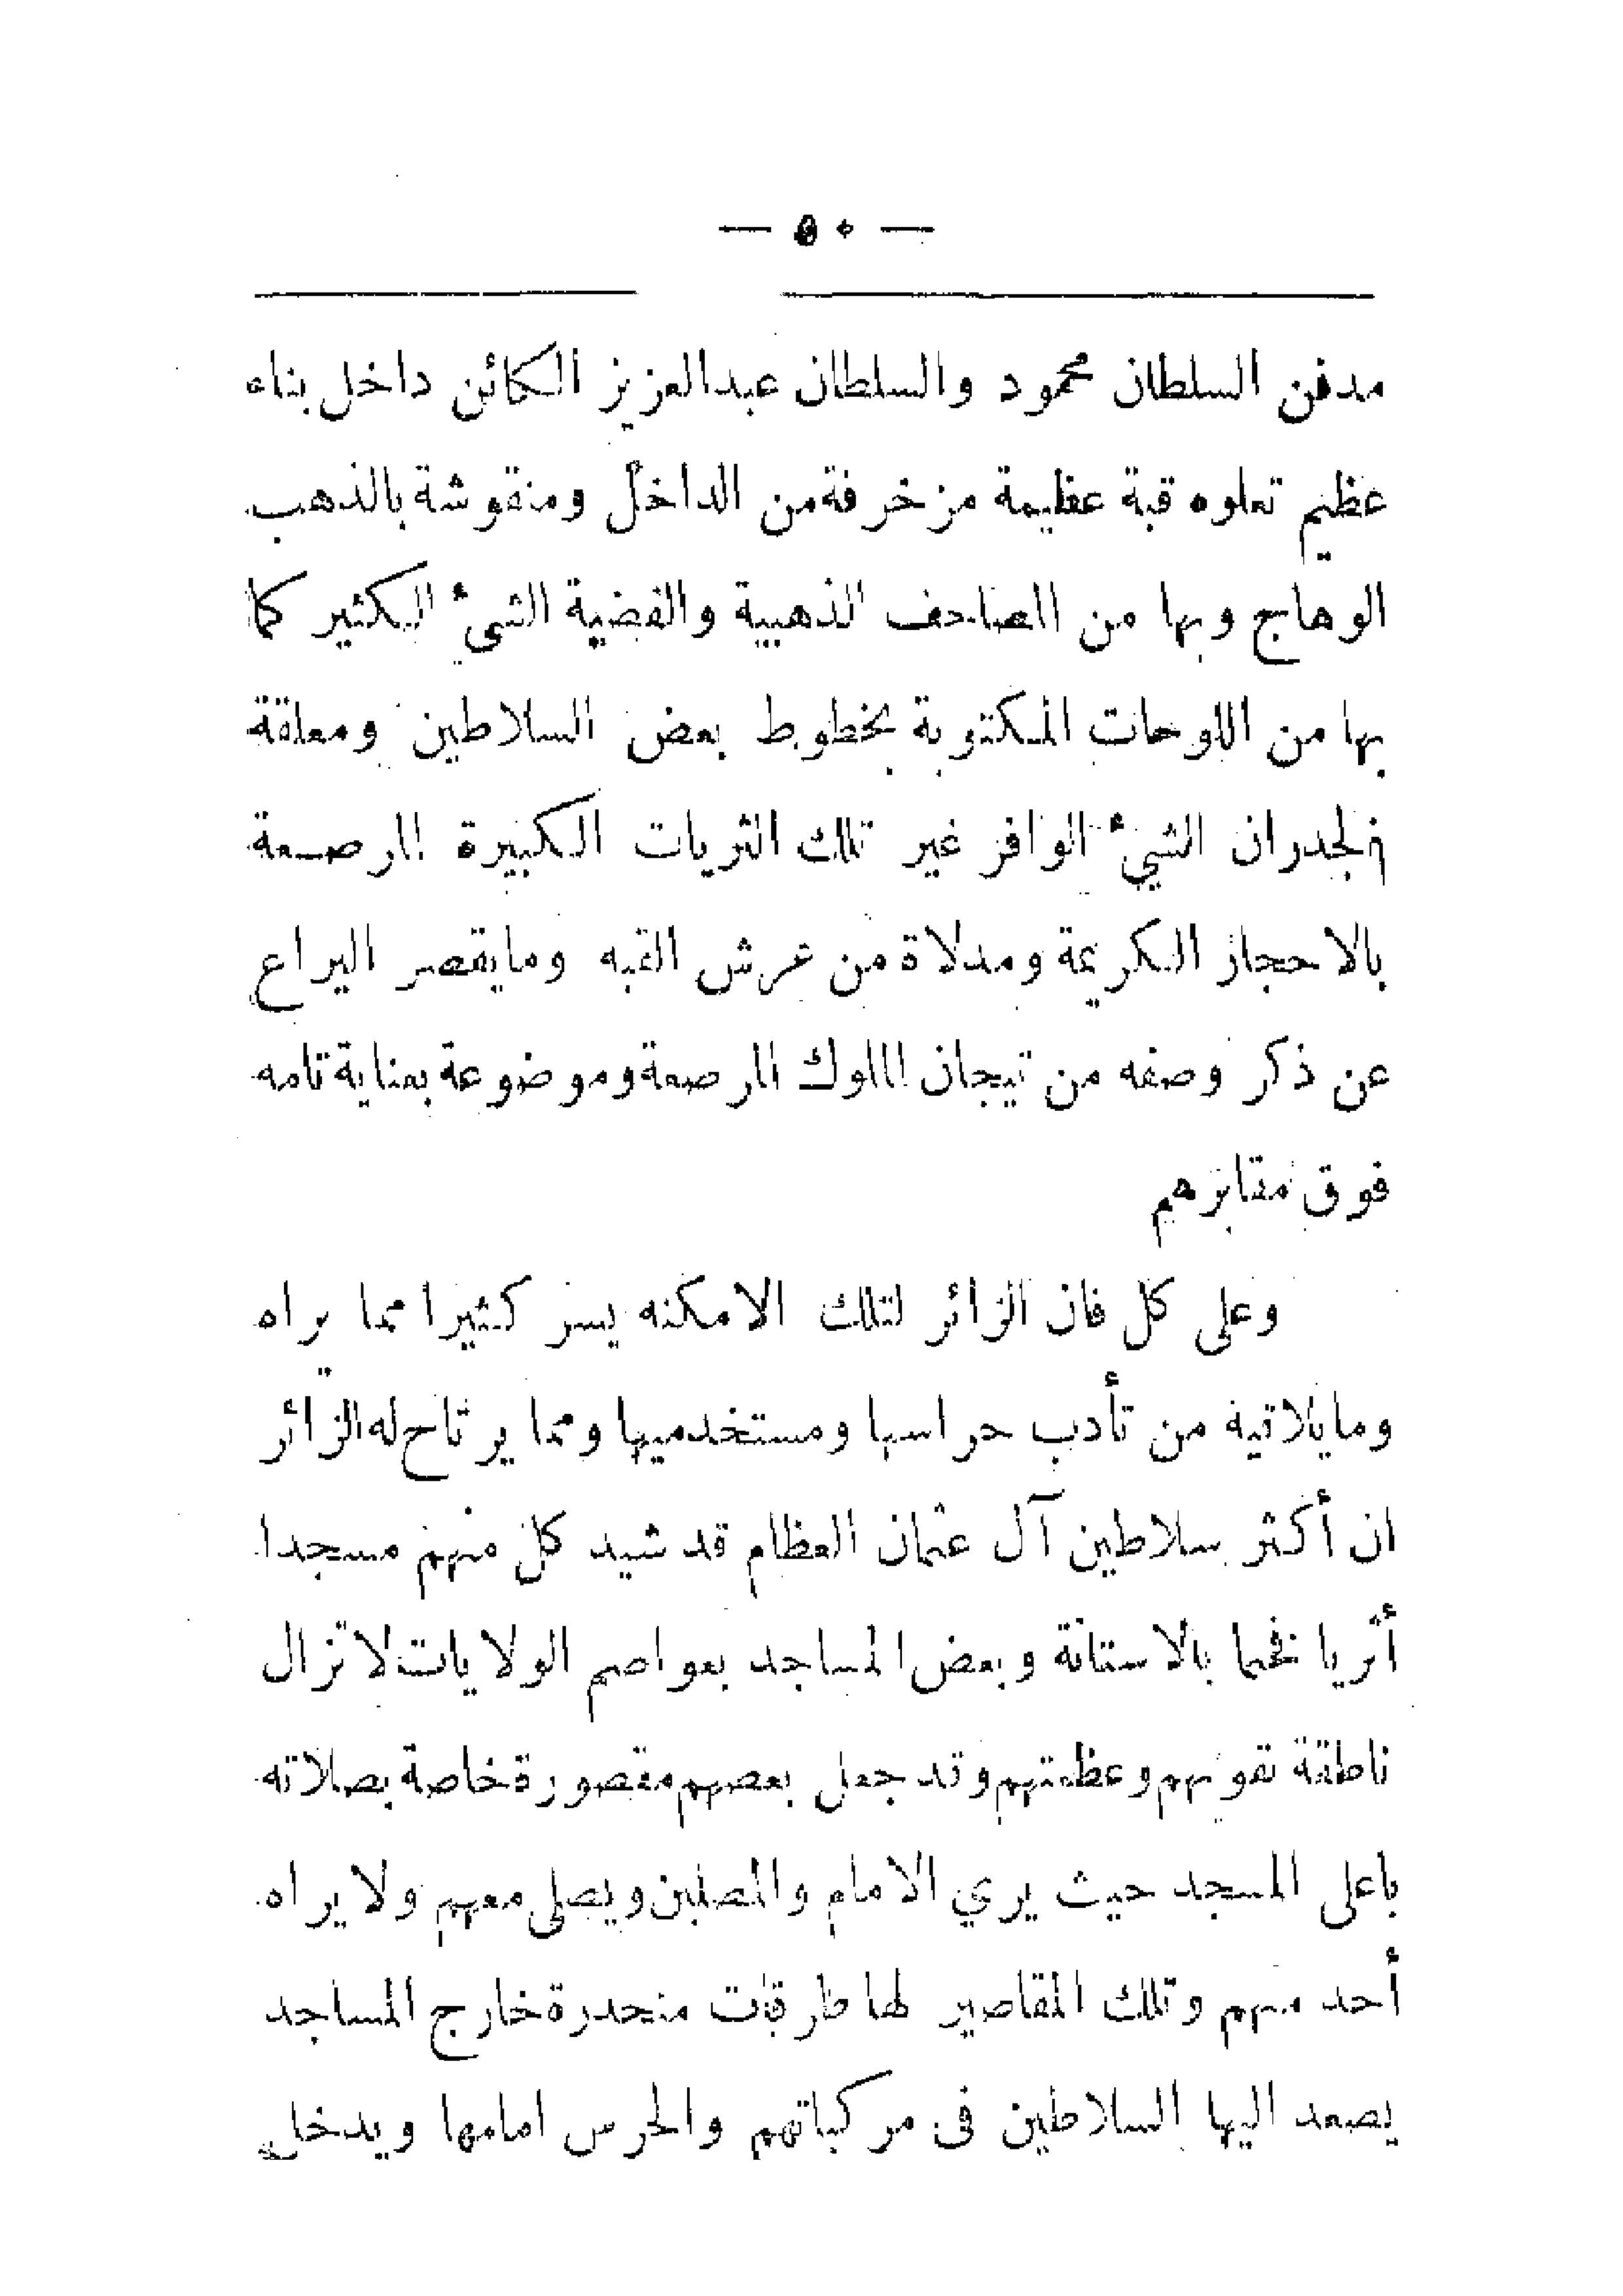 — ٥٠ —
مدفن السلطان محمود والسلطان عبدالعزيز الكائن داخل بناء
عظيم تعلوه قبة عظيمة مزخرفة من الداخل ومنقوشة بالذهب
الوهاج وبها من المصاحف الذهبية والفضية الشيء الكثير كما
بها من اللوحات المكتوبة بخطوط بعض السلاطين ومعلقة
بالجدران الشيء الوافر غير تلك الثريات الكبيرة المرصعة
بالاحجار الكريمة ومدلاة من عرش القبه ومايقصر اليراع
عن ذكر وصفه من تيجان الملوك المرصعة وموضوعة بعناية تامه
فوق مقابرهم
وعلى كل فان الزائر لتلك الامكنه يسر كثيرا مما يراه
ومايلاقيه من تأدب حراسها ومستخدميها ومما يرتاح له الزائر
ان أكثر سلاطين آل عثمان العظام قد شيد كل منهم مسجدا
أثريا فخما بالاستانة وبعض المساجد بعواصم الولايات لا تزال
ناطقة بقوتهم وعظمتهم وقد جعل بعضهم مقصورة خاصة بصلاته
باعلى المسجد حيث يري الامام والمصلين ويصلى معهم ولا يراه
أحد منهم وتلك المقاصير لها طرقات منحدرة خارج المساجد
يصعد اليها السلاطين فى مركباتهم والحرس امامها ويدخل